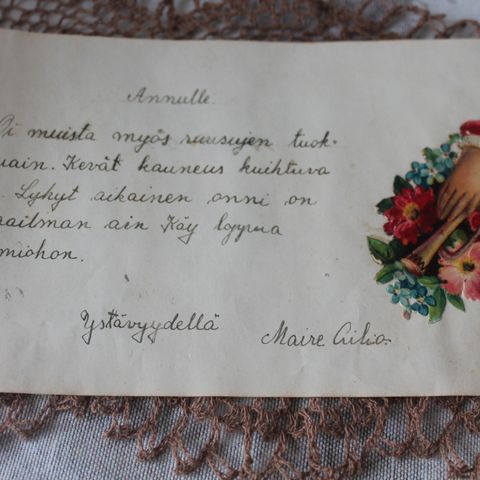 Annulle.
Oi muista myös ruusujen tuok-
uain. Kevät kauneus kuihtuva
. Lyhyt aikainen onni on
aailman ain Käy
miohon.
Ystävyydellä Maire Ailio.